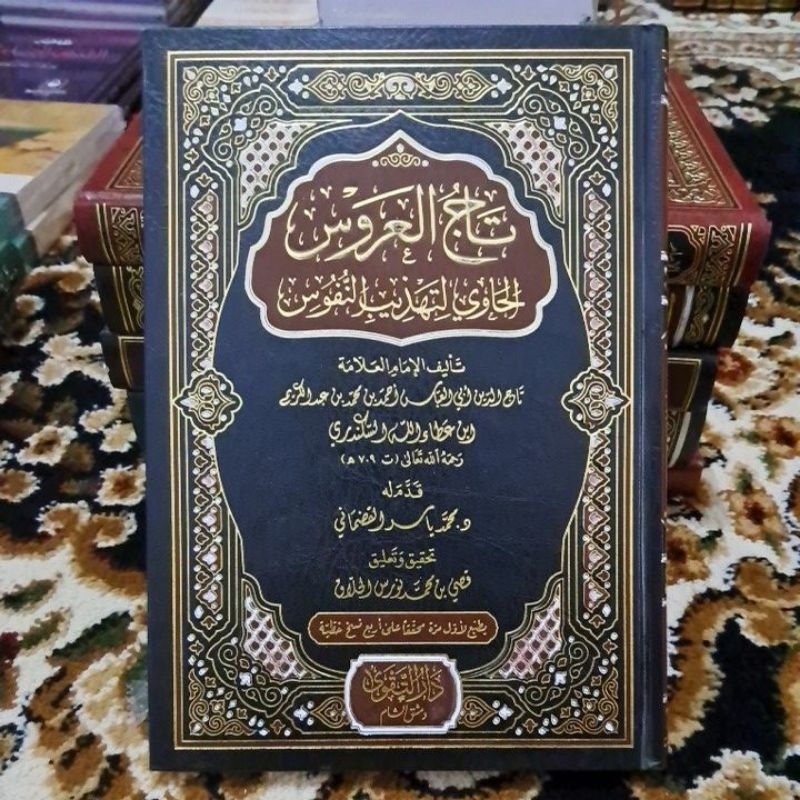 تَاجُ العَرُوسْ
الحَاوِي لِتَهْذِيبِ النُّفُوسْ
تَأليف الإمَام العَلّامَة
تاج الدين أبي العباس أحمد بن محمد بن عبد الكريم
ابن عطاء الله السكندري
رَحمَهُ الله تَعَالى (ت ٧٠٩ هـ)
قَدَّمَ لَه
د. محمَّد ياسر القضماني
تحقيق وَتَعليق
قصي بن محمد نورس الحلاق
يطبع لأول مرة محققاً على أربع نسخ خطيّة
دَارُ التَّقوَى
دمشق الشام